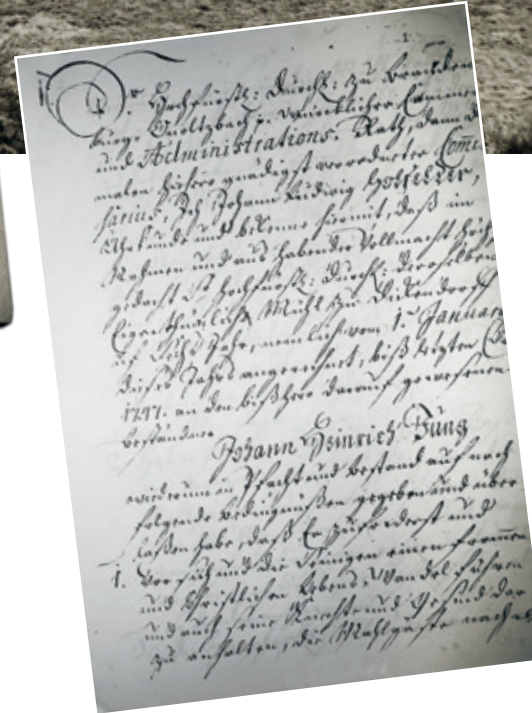 -1-
Der Hochfürstl: Durchl: zu Branden
burg Culmbach würcklicher Cammer
und Administrations-Rath, dann d
malen hiehero gnädigst verordneter Com̃is
sarius, Ich Johann Ludwig
Uhrkunde und bekenne hiermit, daß im
Nahmen und aus habender Vollmacht Höchst
gedacht Sr Hochfürstl: Durchl: deroselben
Eigenthümliche Mühl zu Dickendorff
auf Sechs Jahr, nemlich vom 1. Januar
dieses Jahrs angerechnet, biß letzten
an den bißhero darauf gewesenen
beständner
Johann Heinrich Jung
wiederum in Pfacht und bestand auf nach
folgende bedingnüßen gegeben und über
laßen habe, daß Er zuforderst und
1. Vor sich und die Seinigen einen frommen
und Christlichen Lebens Wandel führen
und auch seine Knechte und Gesind dar
zu anhalten, die Mahlgäste nach